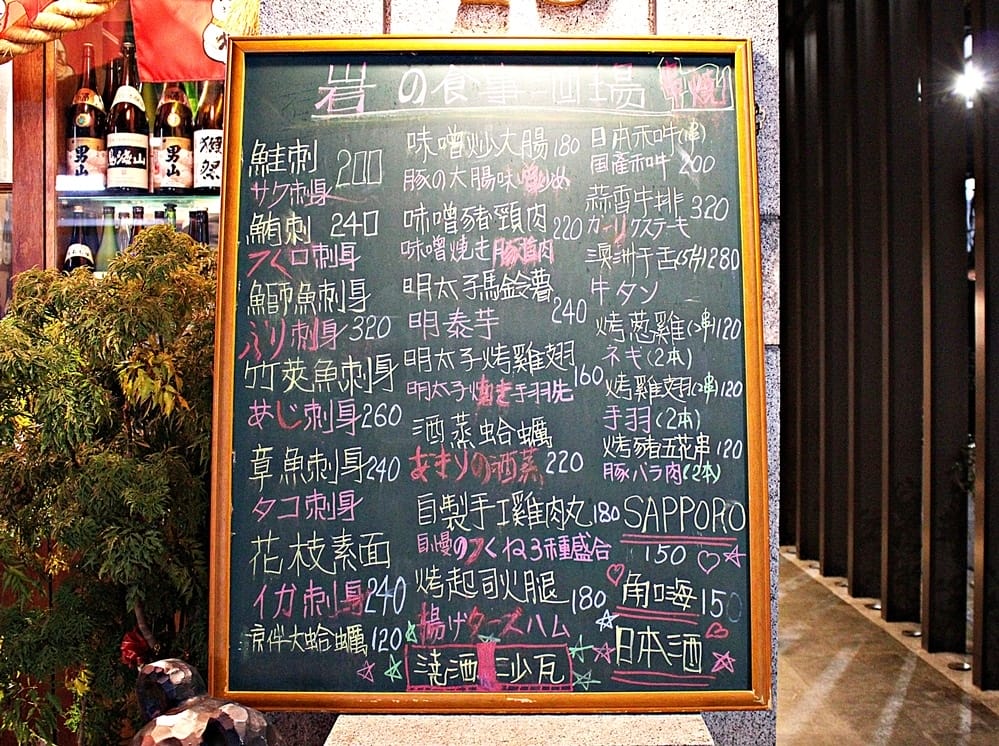 岩の食事酒場 串燒
鮭刺 200
サク刺身
鮪刺 240
つくロ刺身
鰤魚刺身
ぶり刺身 320
竹莢魚刺身
あじ刺身 260
章魚刺身 240
タコ刺身
花枝素面
イカ刺身 240
大蛤蠣 120
味噌炒大腸 180
豚の大腸味噌炒め
味噌豬頸肉 220
味噌焼き豚首肉
明太子馬鈴薯 240
明泰芋
明太子烤雞翅 160
明太子焼き手羽先
酒蒸蛤蠣
あさりの酒蒸 220
自製手工雞肉丸 180
自慢のつくね3種盛合
烤起司火腿 180
揚げチーズハム
澆酒 沙瓦
日本和牛(串)
国産和牛 200
蒜香牛排 320
ガーリクステーキ
澳洲牛舌(5片) 280
牛タン
烤葱雞(2串) 120
ネギ(2本)
烤雞翅(2串) 120
手羽(2本)
烤豬五花串 120
豚バラ肉(2本)
SAPPORO
150
角嗨 150
日本酒
男山
鳥海山
男山
獺祭